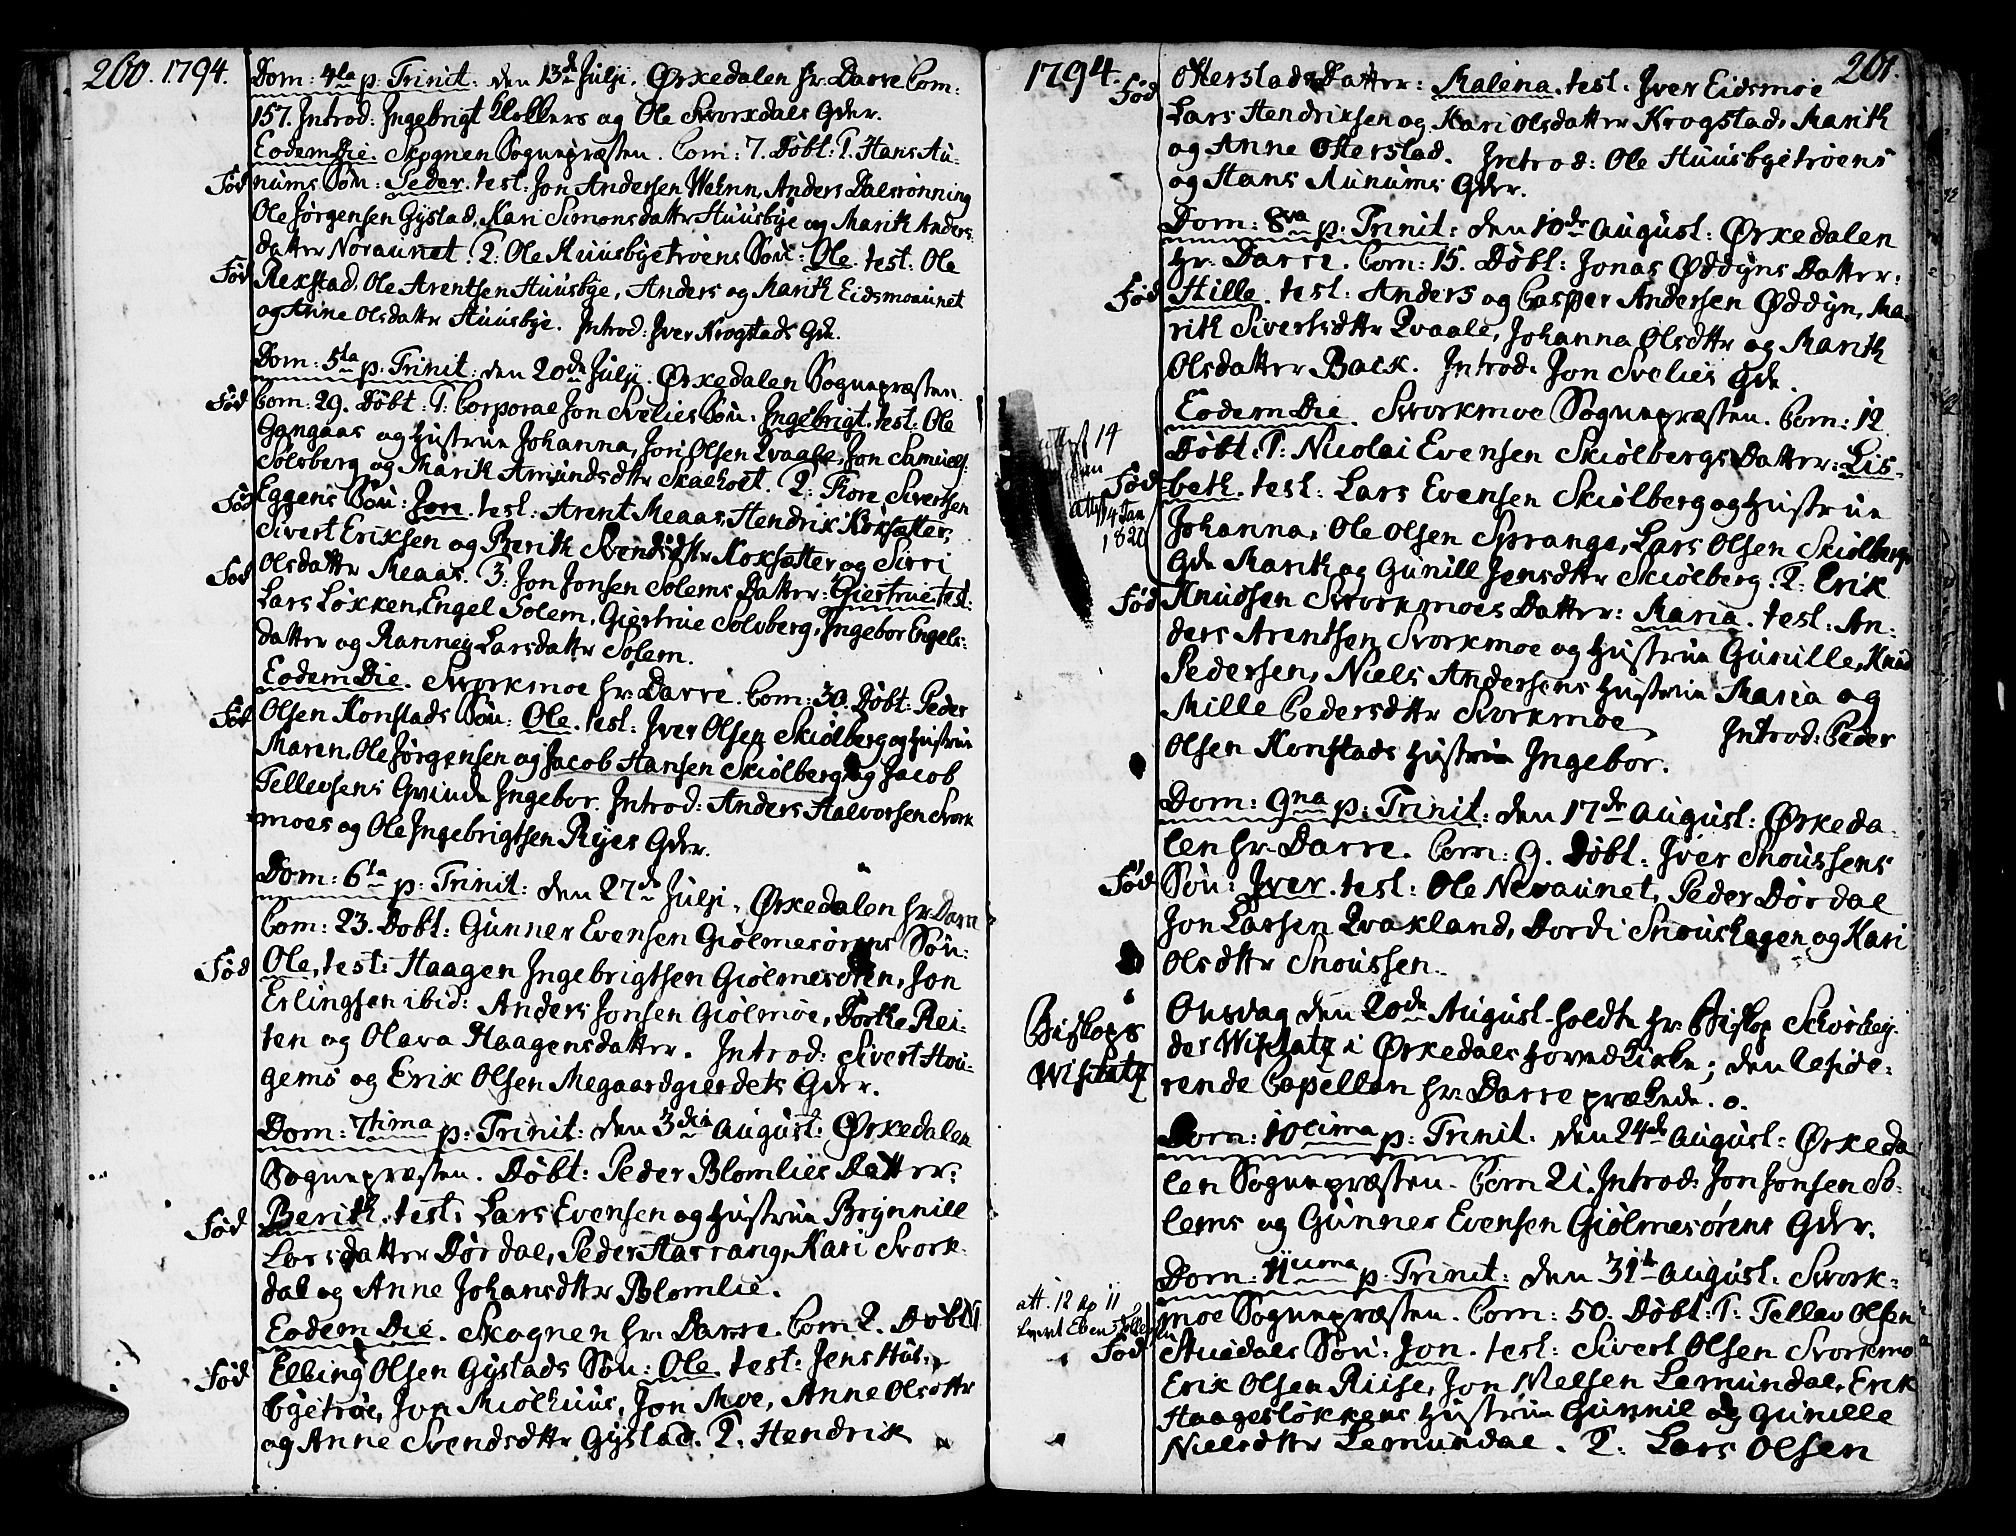 260. 1794.
Dom: 4ta p: Trinit: den 13de Julji. Ørkedalen hr. Darre Com:
157. Introd: Ingebrigt Hollers og Ole Svorkdals Gdr.
Eodem Die. Skognen Sognepræsten. Com: 7. Døbt: 1. Hans Au-
Fød nums Søn: Peder. test: Jon Andersen, Anders Dalsrønning
Ole Jørgensen Gystad, Kari Simonsdattr Huusbye og Marith Anders
datter Novaunet. 2: Ole Huusbyetrøens Søn: Ole. test: Ole
Fød Rekstad, Ole Arentsen Huusbye, Anders og Marith Eidsmoaunet
og Anne Olsdattr Huusbye. Introd: Iver Krogstads Gdr.
Dom: 5ta p: Trinit: den 20de Julji. Ørkedalen Sognepræsten.
Fød Com: 29. Døbt: 1: Corporae Jon Svelies Søn: Ingebrigt. test: Ole
Gangaas og Hustrue Johanna, Jon Olsen Qvaale, Jon Samuels:
Solsberg og Marith Amundsdttr Skalholt. 2: Tore Sivertsen
Fød Eggens Søn: Jon. test: Arent Meaas, Hendrik Korsætter,
Sivert Eriksen og Berith Svendsdttr Koxsætter og Sirri
Fød Olsdattr Meaas. 3: Jon Jonsen Solems Datter: Giertrue test:
Lars Løkken, Engel Solem, Giertrue Solsberg, Ingebor Engels-
datter og Ranney Larsdattr Solem.
Eodem Die. Svorkmoe hr: Darre. Com: 30. Døbt: Peder
Fød Olsen Konstads Søn: Ole. test: Iver Olsen Skiølberg og Hustrue
Maren, Ole Jørgensen og Jacob Hansen Skiølberg og Jacob
Tellevsens Qvinde Ingebor. Introd: Anders Halvorsen Svork
moes og Ole Ingebrigtsen Ryes Gdr.
Dom: 6ta p: Trinit: den 27de Julji. Ørkedalen hr. Darre
Com: 23. Døbt: Gunner Evensen Giølmesørens Søn:
Fød Ole, test: Haagen Ingebrigtsen Giølmesøren, Jon
Erlingsen ibid: Anders Jonsen Giølmøe, Dorthe Rei-
ten og Olava Haagensdatter. Introd: Sivert Hou-
gems og Erik Olsen Megaardgierdets Gdr.
Dom: 7tima p: Trinit: den 3die August: Ørkedalen
Sognepræsten. Døbt: Peder Blomlies Datter:
Fød Berith. test: Lars Evensen og Hustrue Brynnill
Larsdatter Dørdal, Peder Harrang, Kari Svork-
dal og Anne Johansdttr Blomlie.
Eodem Die. Skognen hr. Darre. Com 2. Døbt: 1
Fød Elling Olsen Gystads Søn: Ole. test: Jens Hus-
byetrøe, Jon Miølhuus, Jon Moe, Anne Olsdttr
og Anne Svendsdttr Gystad. 2. Hendrik
1794. 261.
Fød Otterstads Datter: Malena. test. Iver Eidsmoe
Lars Hendriksen og Kari Olsdatter Krogstad, Marith
og Anne Otterstad. Introd: Ole Huusbyetrøens
og Hans Aunums Gdr.
Dom: 8va p: Trinit: den 10de August: Ørkedalen
hr: Darre. Com: 15. Døbt: Jonas Øddyns Datter:
Fød Hille. test: Anders og Casper Andersen Øddyn, Ma-
rith Sivertsdttr Qvaale, Johanna Olsdttr og Marith
Olsdatter Back. Introd: Jon Svelies Gdr.
Eodem Die. Svorkmoe Sognepræsten. Com: 12
Døbt: 1: Nicolai Evensen Skiølbergs Datter: Lis-
Fød beth. test: Lars Evensen Skiølberg og Hustrue
attest 14
attest 14 Jan
1820
Johanna, Ole Olsen Sprange, Lars Olsen Skiølbergs
Gdr Marith og Gunill Jensdttr Skiølberg. 2: Erik
Fød Knudsen Svorkmoes Datter: Maria. test: An-
ders Arentsen Svorkmoe og Hustrue Gunille, Knud
Pedersen, Niels Andersens Hustrue Maria og
Mille Pedersdttr Svorkmoe Introd: Peder
Olsen Konstads Hustrue Ingebor.
Dom: 9na p: Trinit: den 17de August: Ørkeda-
len hr. Darre. Com: 9. Døbt: Iver Snoussens
Fød Søn: Iver. test: Ole Nevaunet, Peder Dørdal
Jon Larsen Qvakland, Dordi Snoushagen og Kari
Olsdttr Snoussen.
Bispens
Wisitatz
Onsdag den 20de August holdte hr. Biskop Schønhey-
der Wisitatz i Ørkedals Hoved Kirke; den reside-
rende Capellan hr. Darre prækede.
Dom: 10cima p: Trinit. den 24de August: Ørkeda
len Sognepræsten. Com 21. Introd: Jon Jonsen So-
lems og Gunner Evensen Giølmesørens Gdr.
Dom: 11cima p: Trinit: den 31te August. Svork-
moe Sognepræsten. Com: 50. Døbt: 1: Tellev Olsen
att. 12 Ap 11
Fød Huusdals Søn: Jon. test: Sivert Olsen Svorkmo
Erik Olsen Riise, Jon Nielsen Lemundal, Erik
Haagesløkkens Hustrue Gunnil og Gunille
Nielsdttr Lemundal. 2: Lars Olsen